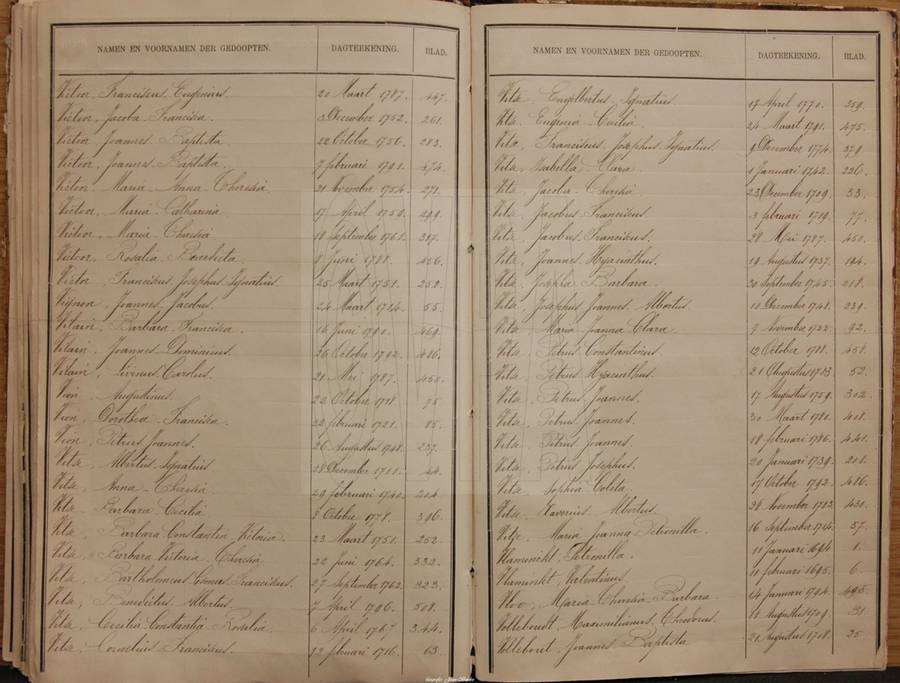 NAMEN EN VOORNAMEN DER GEDOOPTEN. DAGTEEKENING. BLAD.
Victor, Franciscus Eugenius 20 Maart 1787. 447.
Victor, Jacoba Francisca 3 December 1752. 261.
Victor, Joannes Baptista 22 October 1756. 283.
Victor, Joannes Baptista. 7 februari 1791. 474.
Victor, Maria Anna Theresia 21 November 1754. 271.
Victor, Maria Catharina 17 April 1759. 299.
Victor, Maria Theresia 18 September 1761. 317.
Victor, Rosalia Benedicta 8 Juni 1788. 456.
Victor, Franciscus Josephus Ignatius 25 Maart 1751. 252.
Vignon, Joannes Jacobus. 24 Maart 1714. 55.
Vilain, Barbara Francisca. 16 Juni 1790. 469.
Vilain, Joannes Dominicus. 26 October 1792. 486.
Vilain, Livinus Carolus. 21 Mei 1787. 450.
Vion, Augustinus. 22 October 1718. 75.
Vion, Dorothea Francisca 22 februari 1721. 85.
Vion, Petrus Joannes. 26 Augustus 1748. 237.
Vits, Albertus Ignatius 28 December 1711. 44.
Vits, Anna Theresia 29 februari 1740. 204.
Vits, Barbara Cecilia 8 October 1778. 396.
Vits, Barbara Constantia Victoria. 23 Maart 1751. 252.
Vits, Barbara Victoria Theresia 22 Juni 1764. 332.
Vits, Bartholomeus Thomas Franciscus. 27 September 1762. 323.
Vits, Benedictus Albertus. 7 April 1796. 508.
Vits, Cecilia Constantia Rosalia. 6 April 1767 344.
Vits, Cornelius Franciscus. 12 februari 1716. 63.
NAMEN EN VOORNAMEN DER GEDOOPTEN. DAGTEEKENING. BLAD.
Vits, Engelbertus Ignatius. 17 April 1770. 359.
Vits, Eugenia Cecilia 24 Maart 1791. 475.
Vits, Franciscus Josephus Ignatius. 9 December 1774. 379.
Vits, Isabella Clara 1 Januari 1742. 226.
Vits, Jacoba Theresia 23 December 1709. 33.
Vits, Jacobus Franciscus. 3 februari 1719. 77.
Vits, Jacobus Franciscus. 28 Mei 1787. 450.
Vits, Joannes Hyacinthus. 19 Augustus 1737. 194.
Vits, Josepha Barbara. 20 September 1745. 218.
Vits, Josephus Joannes Albertus 11 December 1748. 239.
Vits, Maria Joanna Clara 9 November 1722. 92.
Vits, Petrus Constantinus 12 October 1788. 458.
Vits, Petrus Hyacinthus. 21 Augustus 1713 52.
Vits, Petrus Joannes. 17 Augustus 1759. 302.
Vits, Petrus Joannes. 30 Maart 1780. 408.
Vits, Petrus Joannes 18 februari 1786. 441.
Vits, Petrus Josephus. 20 Januari 1739. 201.
Vits, Sophia Coleta. 17 October 1792. 486.
Vits, Xaverius Albertus. 26 November 1783. 430.
Vitse, Maria Joanna Petronilla 16 September 1714. 57.
Vlamynckt, Petronilla. 11 Januari 1694 1.
Vlamynckt, Valentinus 11 februari 1695. 6.
Vloo, Maria Theresia Barbara 14 Januari 1794. 495.
Vollebout, Maximilianus Theodorus. 18 Augustus 1709. 31
Vollebout, Joannes Baptista 21 Augustus 1708. 25